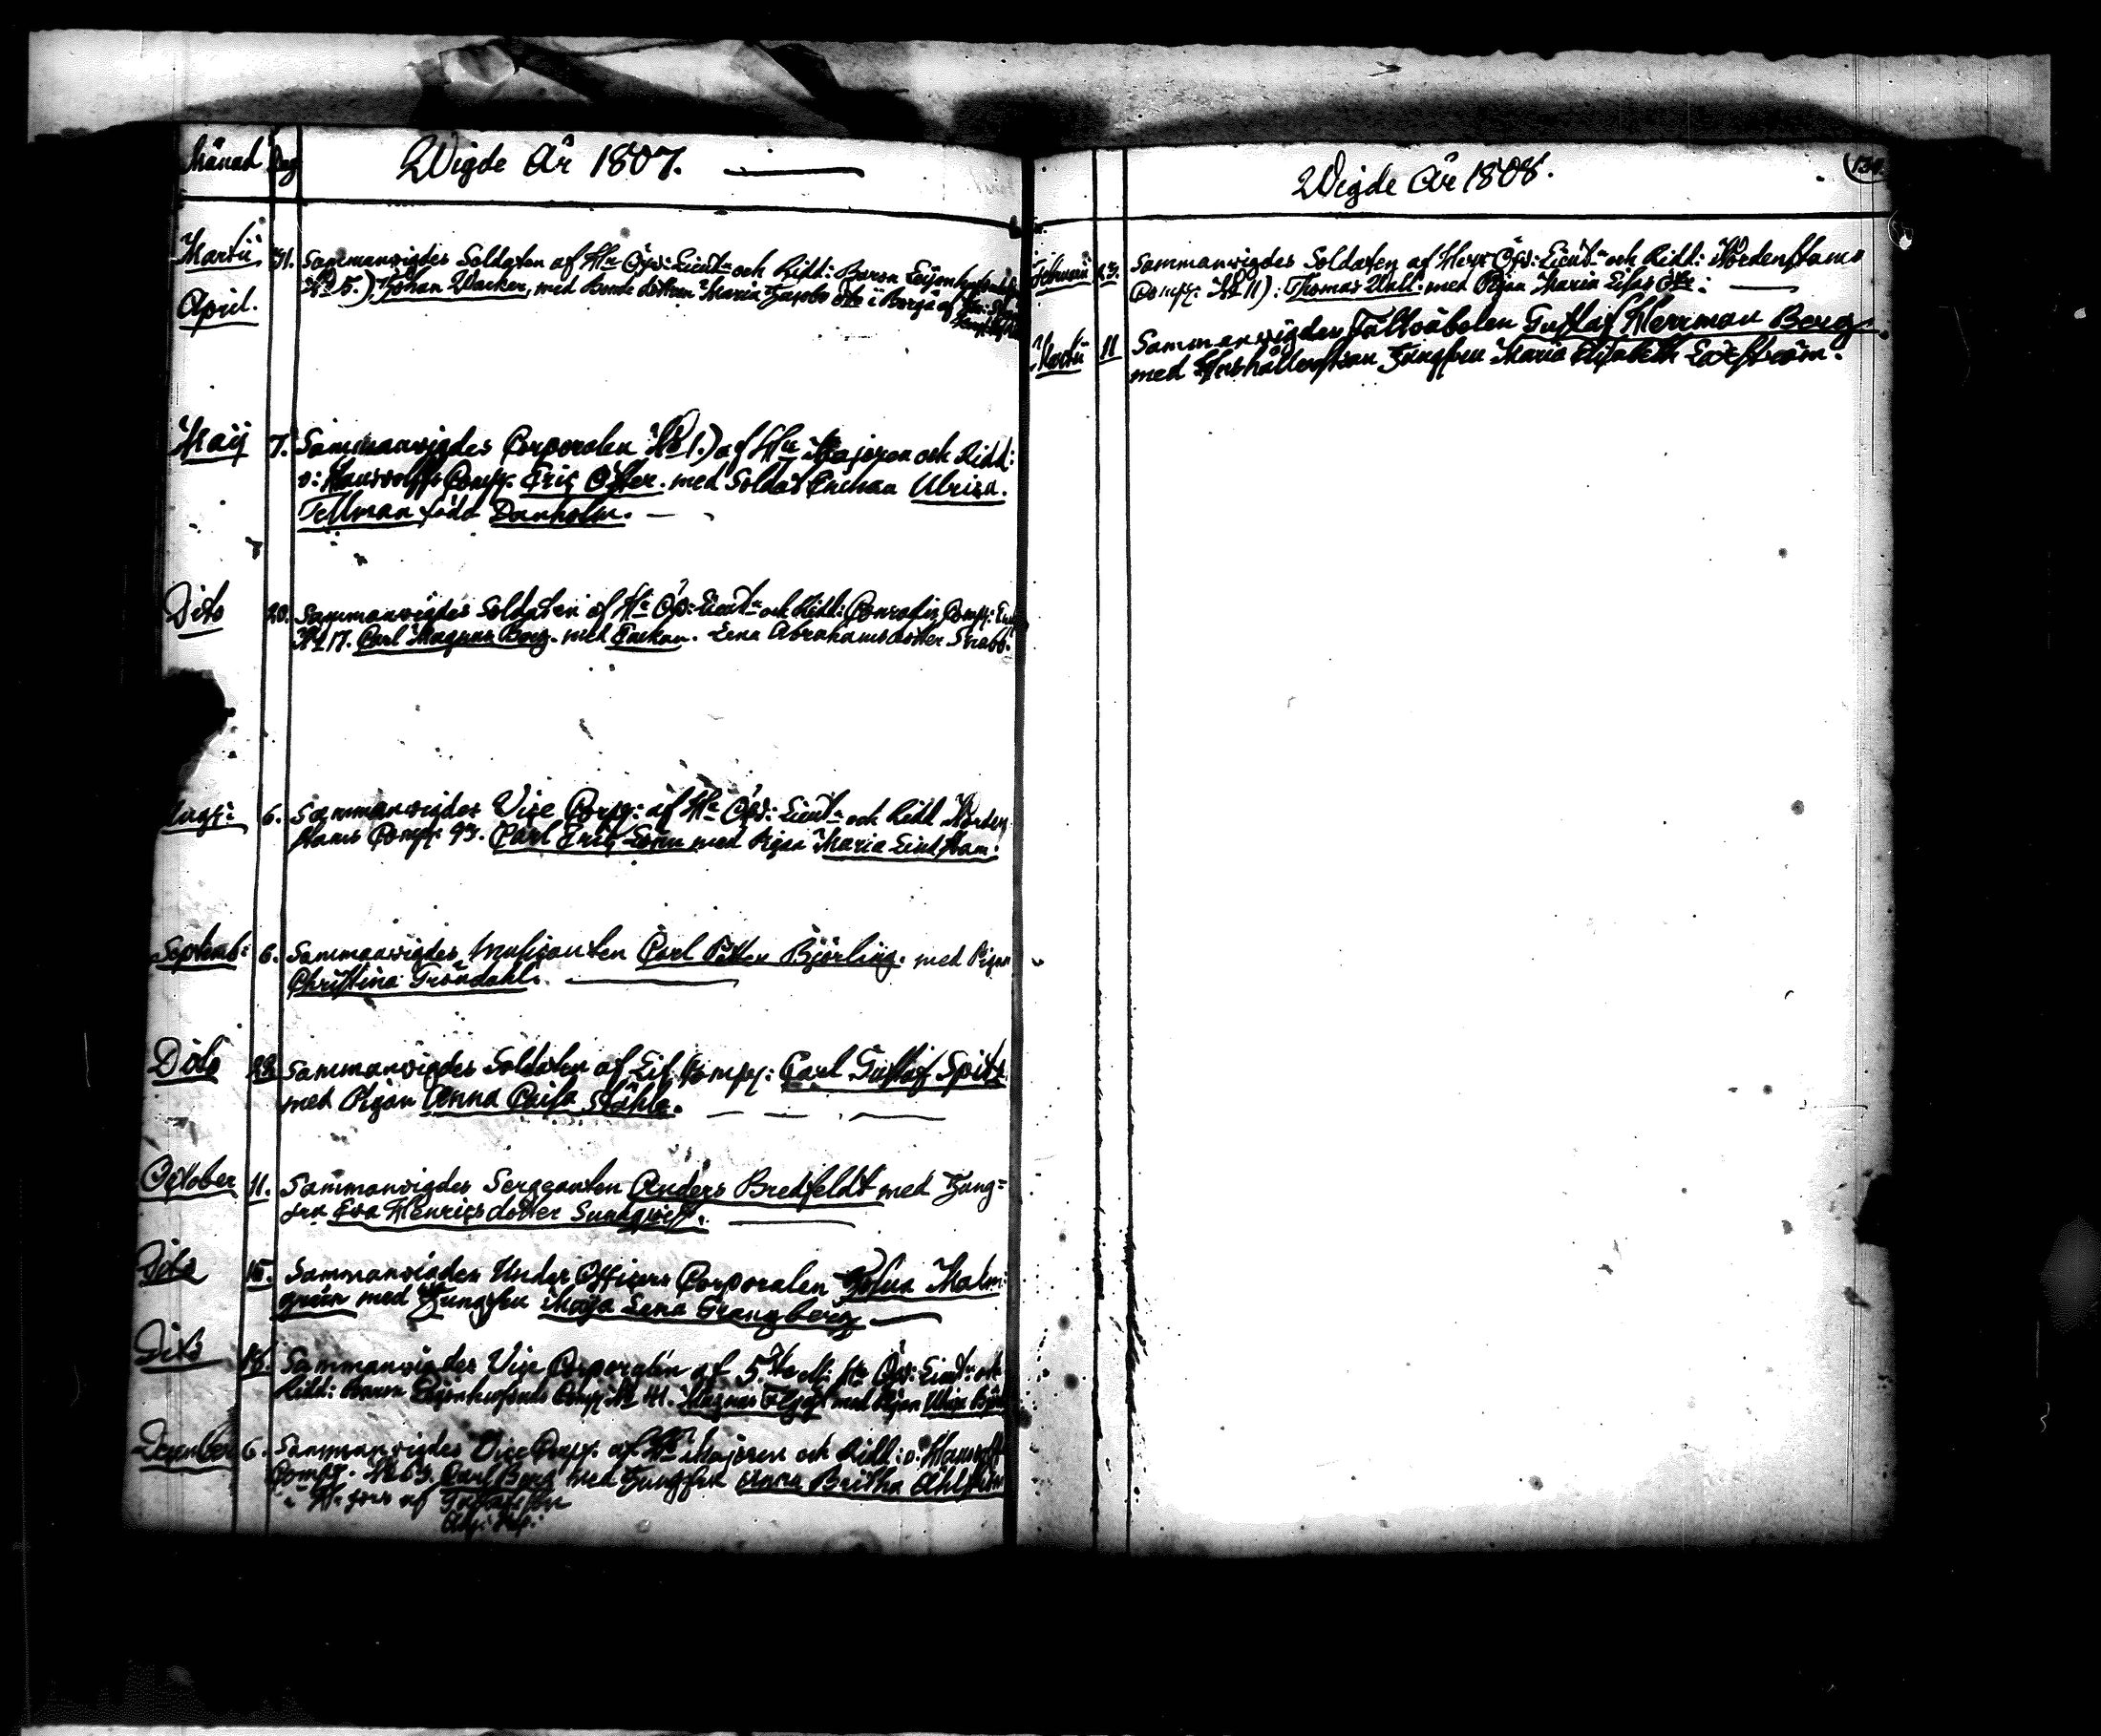 Månad Dag Wigde År 1807.
Martii 31. Sammanwigdes Soldaten af Hr Öfv: Lieutn och Ridd: Baron
No 5.) Johan Wacker, med Bonde dottren Maria Jacobs dotr i Borgå af
April.
Maij 7. Sammanwigdes Corporalen No 1.) af Hr Majoren och Ridd:
v: Hauswolffs Comp: Eric Öster. med Soldats Enckan Ulrica
Tellman född Danholm.
Dito 20. Sammanwigdes Soldaten af Hr Öfv: Lieutn och Ridd: Conradis Comp:
No 17. Carl Magnus Berg. med Enckan. Lena Abrahamsdotter Snabb.
6. Sammanwigdes Vice Corp: af Hr Öfv: Lieutn och Ridd Norden
stams Comp: 93. Carl Eric Lönn med Pigan Maria Lindstam.
Septemb: 6. Sammanwigdes Musicanten Carl Petter Björling. med Pigan
Christina Gröndahl.
Dito 22. Sammanwigdes Soldaten af Lif Comp: Carl Gustaf Spits
med Pigan Anna Caisa Ståhle.
October 11. Sammanwigdes Sergeanten Anders Bredfeldt med Jung=
frn Eva Henricsdotter Sundqwist.
Dito 15. Sammanwigdes Under Officers Corporalen Josua Malm=
green med Jungfru Maja Lena Grangberg
Dito Sammanwigdes Vice Corporalen af 5. Hr Öfv: Lieutn och
Ridd: Baron Comp: No 41. Magnus med Pigan
December 6. Sammanwigdes Vice Corp: af Hr Majoren och Ridd: v: Hauswolffs
Comp: No 63. Carl Berg med Jungfru Anna Britha
af
Wigde År 1808. 
Februarii 23. Sammanwigdes Soldaten af Herr Öfv: Lieutn och Ridd: Nordenstams
Comp: No 11): Thomas Wall. med Pigan Maria Lisas dotr:
Martii 11 Sammanwigdes Fältväbelen Gustaf Herrman Berg.
med Hushållerskan Jungfrun Maria Elisabeth